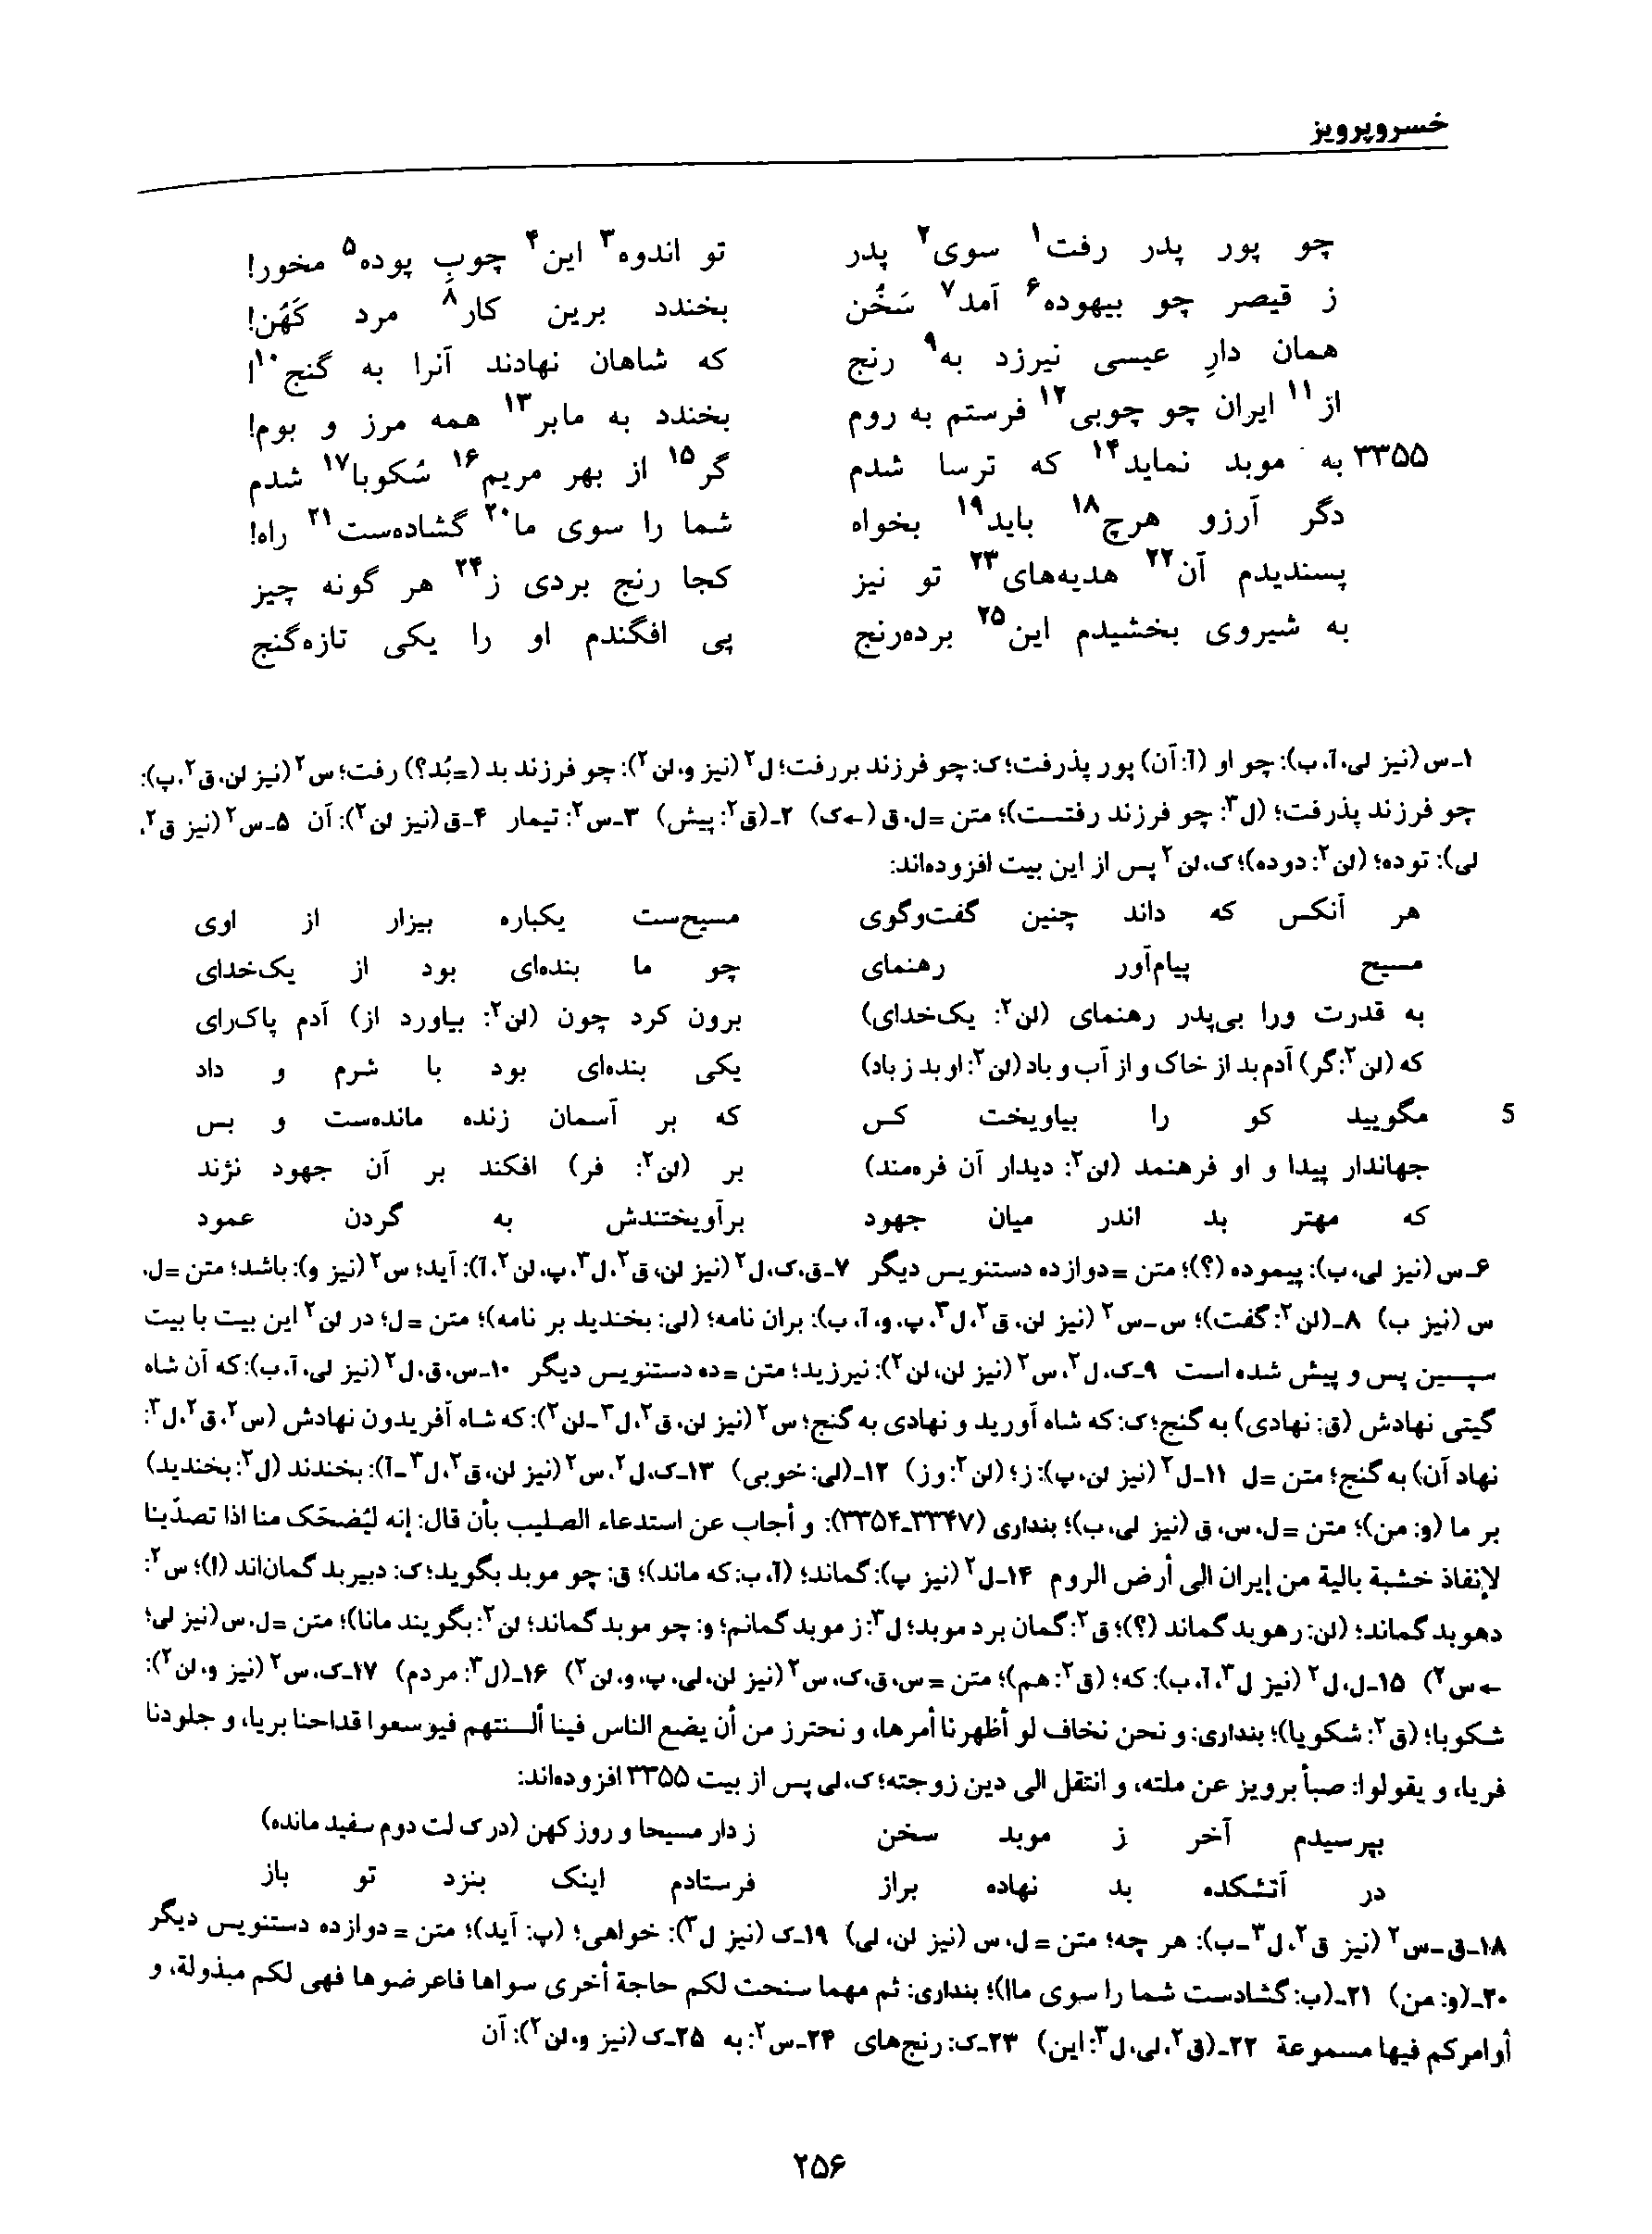 خسروپرویز
چو پور پدر رفت۱ سوی۲ پدر تو اندوه۳ این۴ چوبِ پوده۵ مخور!
ز قیصر چو بیهوده۶ آمد۷ سَخُن بخندد برین کار۸ مرد کَهُن!
همان دارِ عیسی نیرزد به۹ رنج که شاهان نهادند آنرا به گنج۱۰!
از۱۱ ایران چو چوبی۱۲ فرستم به روم بخندد به مابر۱۳ همه مرز و بوم!
۳۳۵۵ به موبد نماید۱۴ که ترسا شدم گر۱۵ از بهر مریم۱۶ سُکوبا۱۷ شدم
دگر آرزو هرچ۱۸ باید۱۹ بخواه شما را سوی ما۲۰ گشاده‌ست۲۱ راه!
پسندیدم آن۲۲ هدیه‌های۲۳ تو نیز کجا رنج بردی ز۲۴ هر گونه چیز
به شیروی بخشیدم این۲۵ برده‌رنج پی افگندم او را یکی تازه‌گنج
۱ـ س (نیز لی، آ، ب): چو او (آ: آن) پور پذرفت؛ ک: چو فرزند بررفت؛ ل۲ (نیز و، لن۲): چو فرزند بد (=بُد؟) رفت؛ س۲ (نیز لن، ق۲، پ):
چو فرزند پذرفت؛ (ل۳: چو فرزند رفتست)؛ متن =ل، ق (←ک) ۲ـ (ق۲: پیش) ۳ـ س۲: تیمار ۴ـ ق (نیز لن۲): آن ۵ـ س۲ (نیز ق۲،
لی): توده؛ (لن۲: دوده)؛ ک، لن۲ پس از این بیت افزوده‌اند:
هر آنکس که داند چنین گفت‌وگوی مسیح‌ست یکباره بیزار از اوی
مسیح پیام‌آور رهنمای چو ما بنده‌ای بود از یک‌خدای
به قدرت ورا بی‌پدر رهنمای (لن۲: یک‌خدای) برون کرد چون (لن۲: بیاورد از) آدم پاک‌رای
که (لن۲: گر) آدم بد از خاک و از آب و باد (لن۲: او بد ز باد) یکی بنده‌ای بود با شرم و داد
5 مگویید کو را بیاویخت کس که بر آسمان زنده مانده‌ست و بس
جهاندار پیدا و او فرهنمد (لن۲: دیدار آن فره‌مند) بر (لن۲: فر) افکند بر آن جهود نژند
که مهتر بد اندر میان جهود برآویختندش به گردن عمود
۶ـ س (نیز لی، ب): پیموده (؟)؛ متن =دوازده دستنویس دیگر ۷ـ ق، ک، ل۲ (نیز لن، ق۲، ل۳، پ، لن۲، آ): آید؛ س۲ (نیز و): باشد؛ متن =ل،
س (نیز ب) ۸ـ (لن۲: گفت)؛ س-س۲ (نیز لن، ق۲، ل۳، پ، و، آ، ب): بران نامه؛ (لی: بخندید بر نامه)؛ متن =ل؛ در لن۲ این بیت با بیت
سپسین پس و پیش شده است ۹ـ ک، ل۲، س۲ (نیز لن، لن۲): نیرزید؛ متن =ده دستنویس دیگر ۱۰ـ س، ق، ل۲ (نیز لی، آ، ب): که آن شاه
گیتی نهادش (ق: نهادی) به گنج؛ ک: که شاه آورید و نهادی به گنج؛ س۲ (نیز لن، ق۲، ل۳ـ لن۲): که شاه آفریدون نهادش (س۲، ق۲، ل۳:
نهاد آن) به گنج؛ متن =ل ۱۱ـ ل۲ (نیز لن، پ): ز؛ (لن۲: وز) ۱۲ـ (لی: خوبی) ۱۳ـ ک، ل۲، س۲ (نیز لن، ق۲، ل۳ـ آ): بخندند (ل۲: بخندید)
بر ما (و: من)؛ متن =ل، س، ق (نیز لی، ب)؛ بنداری (۳۳۴۷ـ۳۳۵۴): و أجاب عن استدعاء الصلیب بأن قال: إنه لیُضحَک منا اذا تصدّینا
لإنفاذ خشبة بالیة من إیران الی أرض الروم ۱۴ـ ل۲ (نیز پ): گماند؛ (آ، ب: که ماند)؛ ق: چو موبد بگوید؛ ک: دبیربد گمان‌اند (!)؛ س۲:
دهوبد گماند؛ (لن: رهوبد گماند (؟)؛ ق۲: گمان برد موبد؛ ل۳: ز موبد گمانم؛ و: چو موبد گماند؛ لن۲: بگویند مانا)؛ متن =ل، س (نیز لی؛
←س۲) ۱۵ـ ل، ل۲ (نیز ل۳، آ، ب): که؛ (ق۲: هم)؛ متن =س، ق، ک، س۲ (نیز لن، لی، پ، و، لن۲) ۱۶ـ (ل۳: مردم) ۱۷ـ ک، س۲ (نیز و، لن۲):
شکوبا؛ (ق۲: شکویا)؛ بنداری: و نحن نخاف لو أظهرنا أمرها، و نحترز من أن یضع الناس فینا ألسنتهم فیوسعوا قداحنا بریا، و جلودنا
فریا، و یقولوا: صبأ برویز عن ملته، و انتقل الی دین زوجته؛ ک، لی پس از بیت ۳۳۵۵ افزوده‌اند:
بپرسیدم آخر ز موبد سخن ز دار مسیحا و روز کهن (در ک لت دوم سفید مانده)
در آتشکده بد نهاده براز فرستادم اینک بنزد تو باز
۱۸ـ ق-س۲ (نیز ق۲، ل۳ـ ب): هر چه؛ متن =ل، س (نیز لن، لی) ۱۹ـ ک (نیز ل۳): خواهی؛ (پ: آید)؛ متن =دوازده دستنویس دیگر
۲۰ـ (و: من) ۲۱ـ (ب: گشادست شما را سوی ما!)؛ بنداری: ثم مهما سنحت لکم حاجة أخری سواها فاعرضوها فهی لکم مبذولة، و
أوامرکم فیها مسموعة ۲۲ـ (ق۲، لی، ل۳: این) ۲۳ـ ک: رنج‌های ۲۴ـ س۲: به ۲۵ـ ک (نیز و، لن۲): آن
۲۵۶